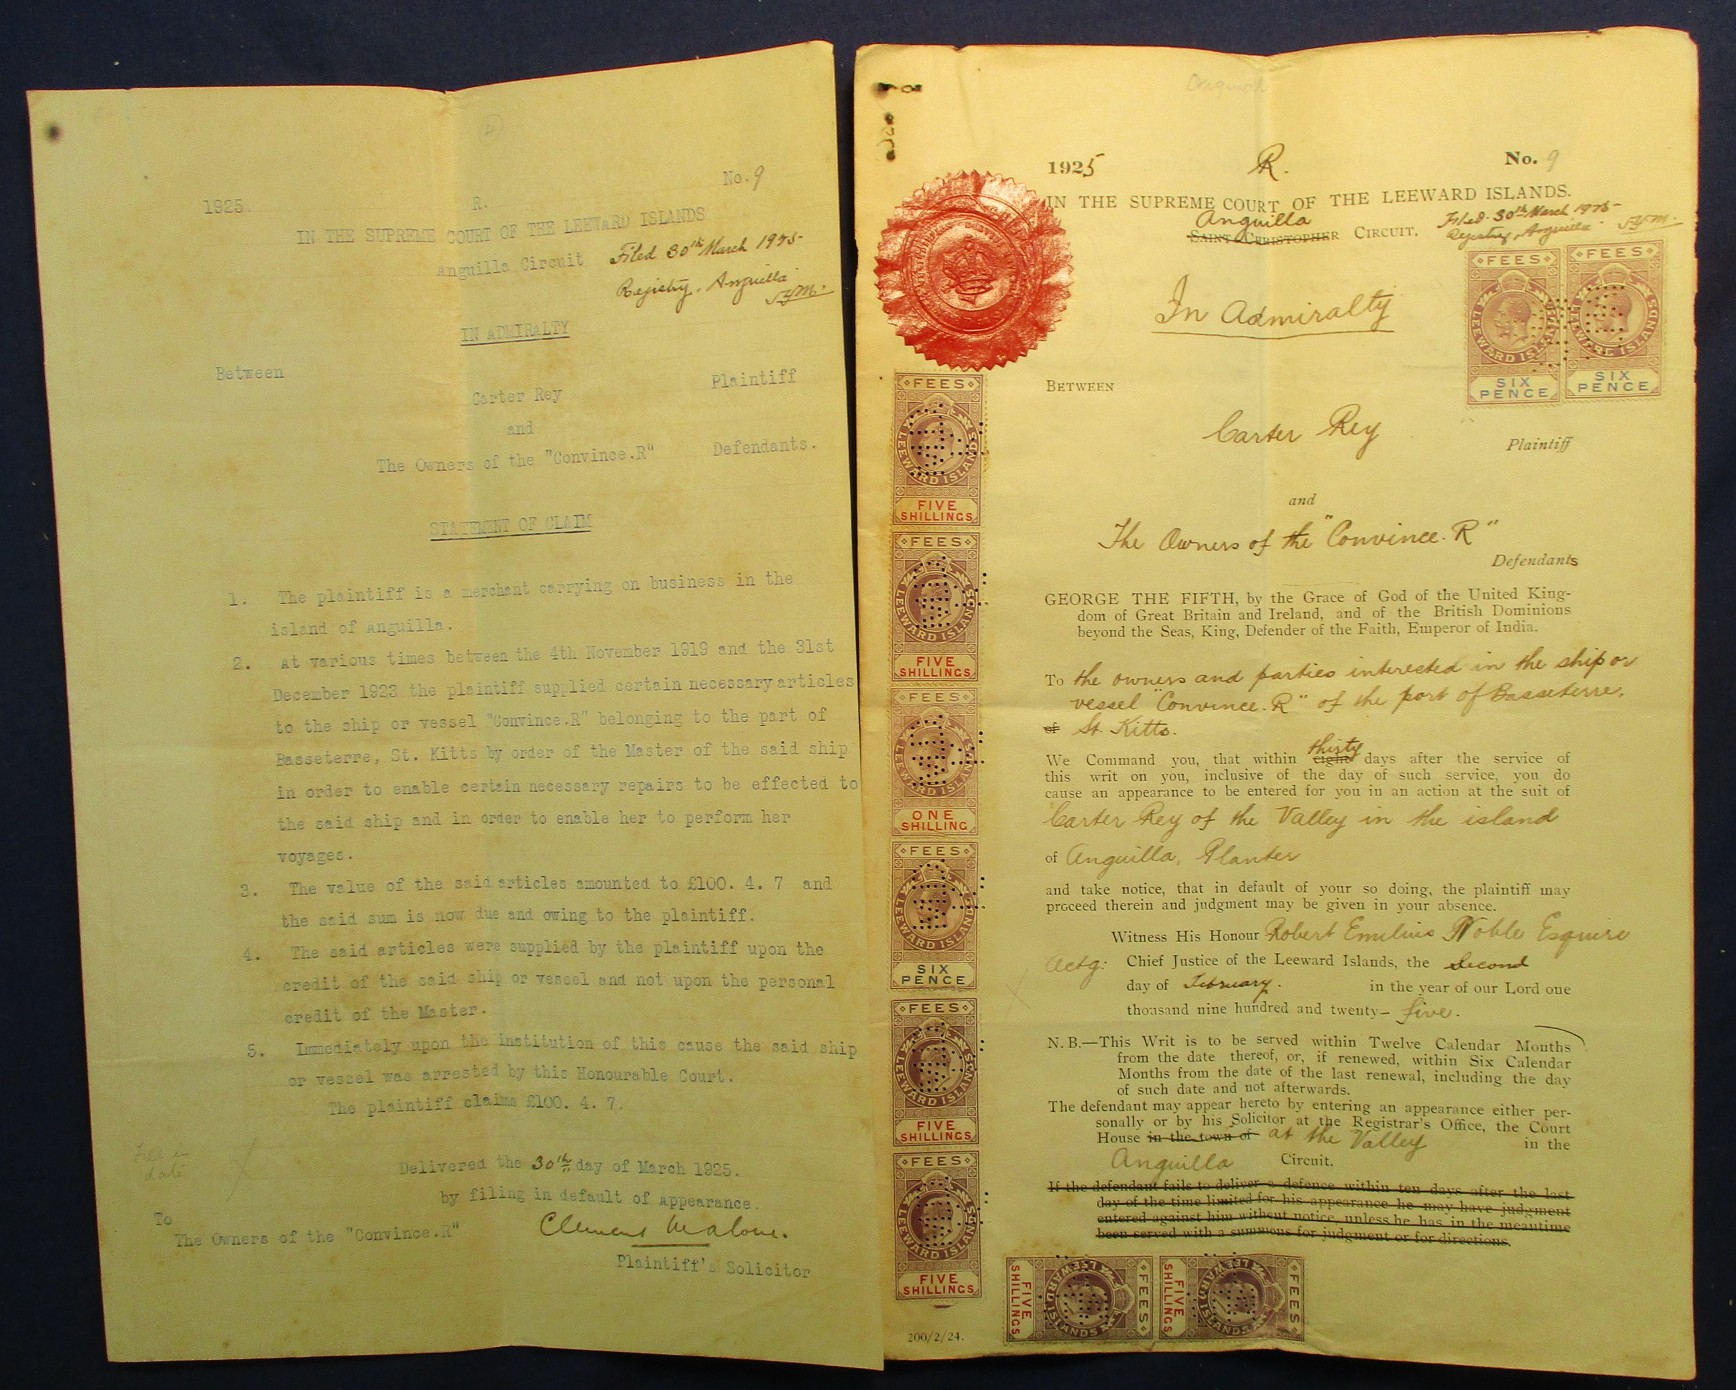 4
No. 9
1925. R.
IN THE SUPREME COURT OF THE LEEWARD ISLANDS
Anguilla Circuit
Filed 30th March 1925
Registry, Anguilla
IN ADMIRALTY
Between
Carter Rey Plaintiff
and
The Owners of the "Convince.R" Defendants.
STATEMENT OF CLAIM
1. The plaintiff is a merchant carrying on business in the
island of Anguilla.
2. At various times between the 4th November 1919 and the 31st
December 1923 the plaintiff supplied certain necessary articles
to the ship or vessel "Convince.R" belonging to the part of
Basseterre, St. Kitts by order of the Master of the said ship
in order to enable certain necessary repairs to be effected to
the said ship and in order to enable her to perform her
voyages.
3. The value of the said articles amounted to £100. 4. 7 and
the said sum is now due and owing to the plaintiff.
4. The said articles were supplied by the plaintiff upon the
credit of the said ship or vessel and not upon the personal
credit of the Master.
5. Immediately upon the institution of this cause the said ship
or vessel was arrested by this Honourable Court.
The plaintiff claims £100. 4. 7.
Fill in
date
Delivered the 30th day of March 1925.
by filing in default of Appearance.
To
The Owners of the "Convince.R"
Clement Malone.
Plaintiff's Solicitor
Original
1925 R. No. 9
IN THE SUPREME COURT OF THE LEEWARD ISLANDS.
Anguilla
SAINT CHRISTOPHER CIRCUIT.
Filed 30th March 1925
Registry, Anguilla
In Admiralty
FEES LEEWARD ISLANDS SIX PENCE
FEES LEEWARD ISLANDS SIX PENCE
BETWEEN
Carter Rey
Plaintiff
and
The Owners of the "Convince.R"
Defendants
GEORGE THE FIFTH, by the Grace of God of the United King-
dom of Great Britain and Ireland, and of the British Dominions
beyond the Seas, King, Defender of the Faith, Emperor of India.
To the owners and parties interested in the ship or
vessel "Convince.R" of the port of Basseterre,
of St. Kitts.
thirty
We Command you, that within eight days after the service of
this writ on you, inclusive of the day of such service, you do
cause an appearance to be entered for you in an action at the suit of
Carter Rey of the Valley in the island
of Anguilla, Planter
and take notice, that in default of your so doing, the plaintiff may
proceed therein and judgment may be given in your absence.
Witness His Honour Robert Emilius Noble Esquire
Actg: Chief Justice of the Leeward Islands, the Second
day of February. in the year of our Lord one
thousand nine hundred and twenty- five.
N.B.—This Writ is to be served within Twelve Calendar Months
from the date thereof, or, if renewed, within Six Calendar
Months from the date of the last renewal, including the day
of such date and not afterwards.
The defendant may appear hereto by entering an appearance either per-
sonally or by his Solicitor at the Registrar's Office, the Court
House in the town of at the Valley in the
Anguilla Circuit.
If the defendant fails to deliver a defence within ten days after the last
day of the time limited for his appearance he may have judgment
entered against him without notice, unless he has in the meantime
been served with a summons for judgment or for directions.
FEES LEEWARD ISLANDS FIVE SHILLINGS
FEES LEEWARD ISLANDS FIVE SHILLINGS
FEES LEEWARD ISLANDS ONE SHILLING
FEES LEEWARD ISLANDS SIX PENCE
FEES LEEWARD ISLANDS FIVE SHILLINGS
FEES LEEWARD ISLANDS FIVE SHILLINGS
FEES LEEWARD ISLANDS FIVE SHILLINGS
FEES LEEWARD ISLANDS FIVE SHILLINGS
200/2/24.